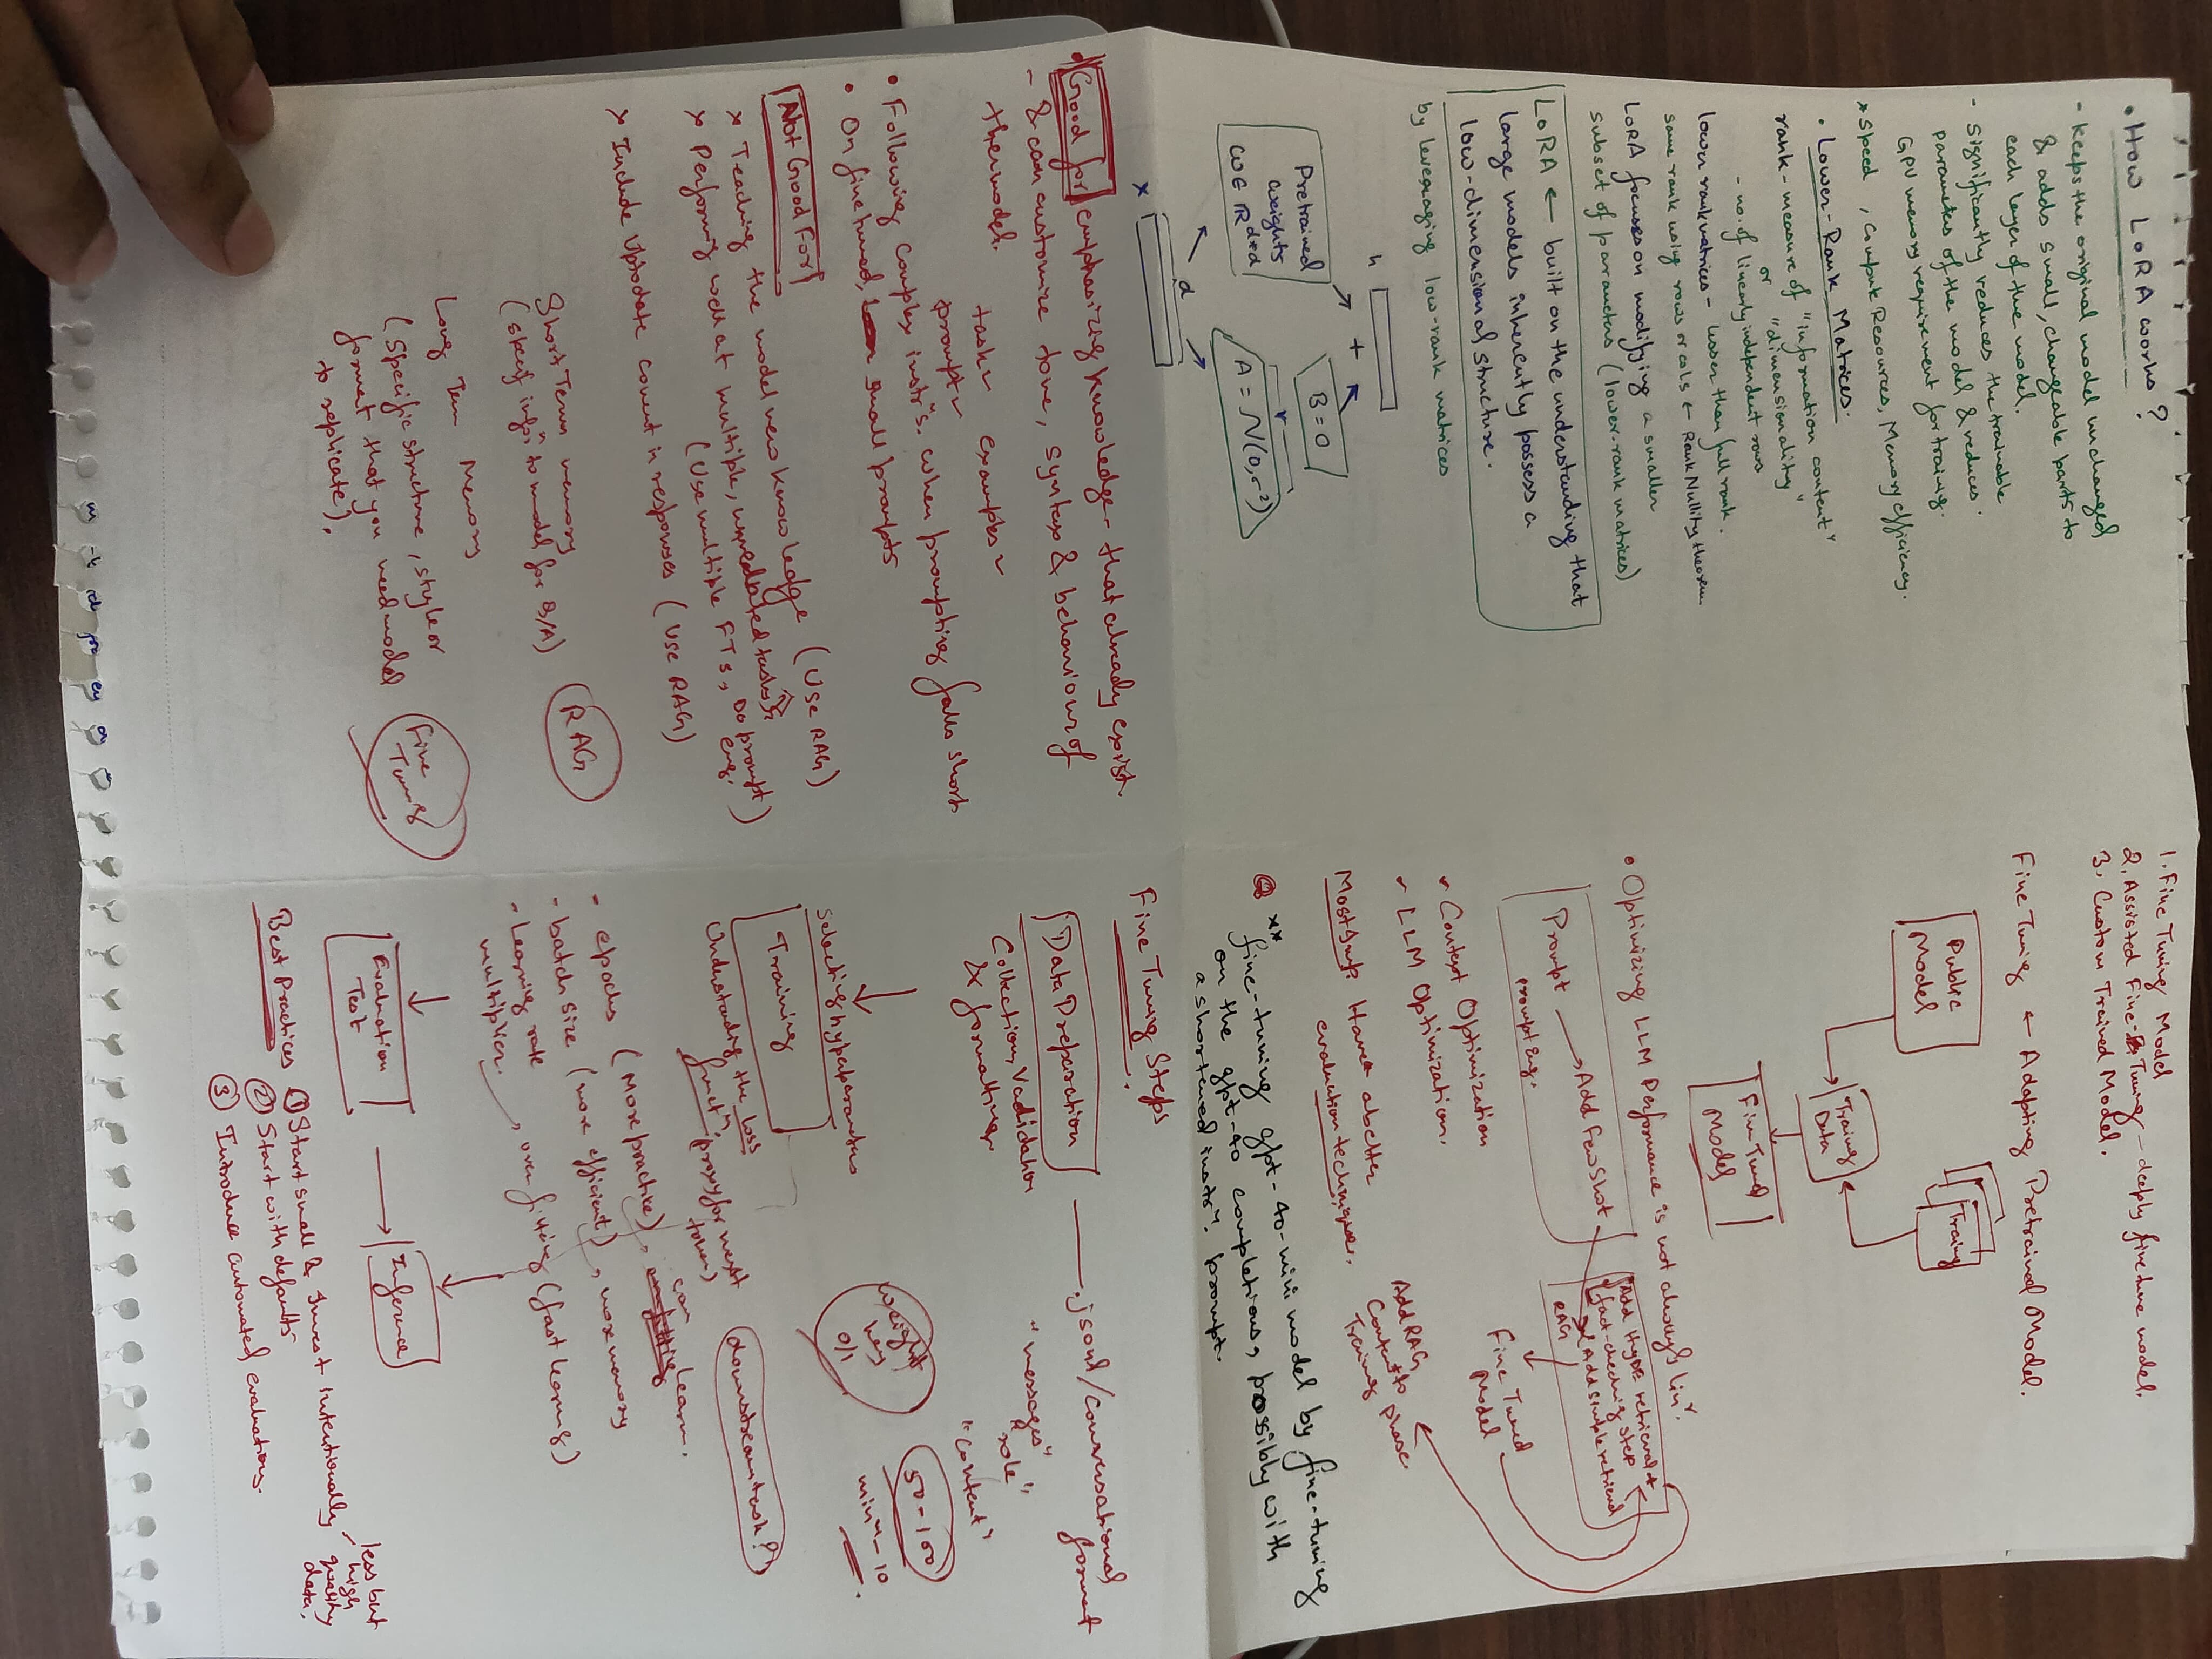 • How LoRA works?
- Keeps the original model unchanged
& adds small, changeable parts to
each layer of the model.
- Significantly reduces the trainable
parameters of the model & reduces
GPU memory requirement for training.
* speed, compute Resources, Memory efficiency.
• Lower-Rank Matrices.
rank - measure of "information content"
or "dimensionality"
- no. of linearly independent rows
lower rank matrices - lesser than full rank.
same rank using rows or cols ← Rank Nullity theorem
LoRA focuses on modifying a smaller
subset of parameters (lower-rank matrices)
LoRA ← built on the understanding that
large models inherently possess a
low-dimensional structure.
by leveraging low-rank matrices
h
+
Pretrained
weights
W ∈ R d×d
B = 0
r
A = N(0, σ²)
d
x
Good for emphasizing knowledge - that already exist
- & can customize tone, syntax & behaviour of
the model.
task ~ examples ~
prompt ~
• Following complex instrⁿs. when prompting falls short
• On fine tuned, small prompts
Not Good For
* Teaching the model new knowledge (Use RAG)
* Performing well at multiple, unrelated tasks
(Use multiple FTs, Do prompt
eng.)
* Include Uptodate content in responses (Use RAG)
Short Term memory
(specf infoⁿ to model for Q/A)
RAG
Long Term Memory
(Specific structure, style or
format that you need model
to replicate).
Fine
Tuning
1. Fine Tuning Model
2. Assisted Fine-Tuning - deeply fine tune model.
3. Custom Trained Model.
Fine Tuning ← Adapting Pretrained Model.
Public
Model
Training
Training
Data
Fine Tuned
Model
• Optimizing LLM Performance is not always linʳ.
Prompt → Add Few Shot
prompt eng.
Add HyDE retrieval +
fact-checking step
Add simple retrieval
RAG
✓ Context Optimization
✓ LLM Optimization.
Fine Tuned
Model
Add RAG
Content to
Training phase.
Most Imp. Have a better
evaluation techniques.
** fine-tuning gpt-4o-mini model by fine-tuning
on the gpt-4o completions, possibly with
a shortened instrⁿ. prompt.
Fine Tuning Steps
Data Preperation → .jsonl/conversational
format
Collection, Validation
& formatting
"messages"
"role"
"content"
50 - 100
min - 10
Weight
key
0/1
Selecting hyperparameters
Training
Understanding the loss
functⁿ. (proxy for next
token)
downstream task?
- epochs (more practice), can learn.
- batch size (more efficient), more memory
- Learning rate
multiplier. overfitting (fast learning)
Evaluation
Test
Inference
Best Practices ① Start small & Invest intentionally - less but
high
quality
data.
② Start with defaults.
③ Introduce automated evaluations.